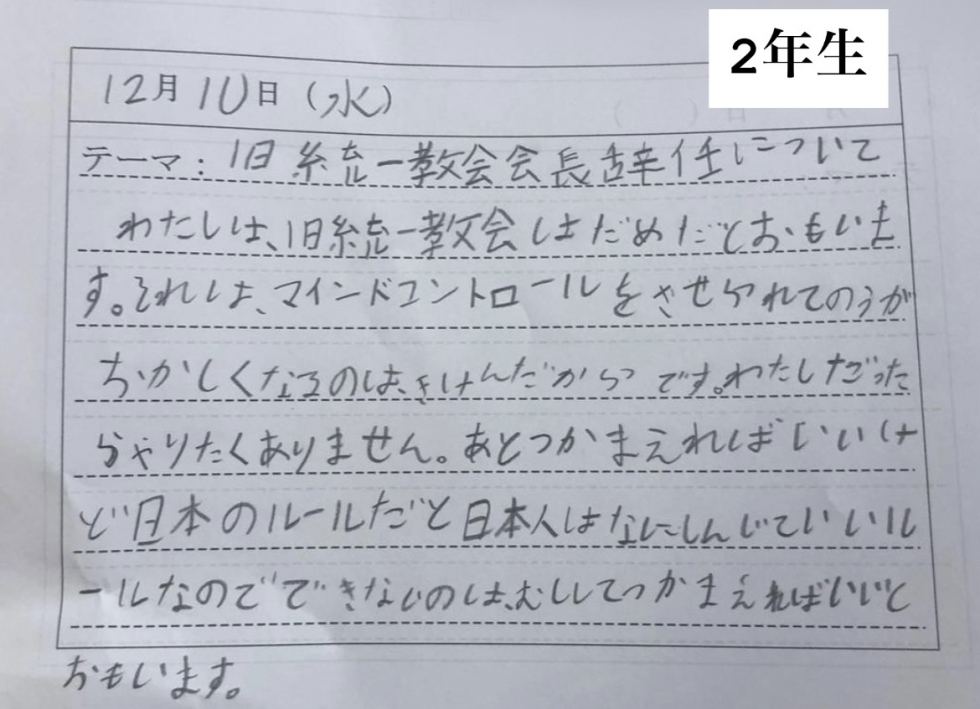 2年生
12月10日(水)
テーマ:旧統一教会会長辞任について
わたしは、旧統一教会はだめだとおもいま
す。それは、マインドコントロールをさせられてのうが
おかしくなるのは、きけんだからです。わたしだった
らやりたくありません。あとつかまえればいいけ
ど日本のルールだと日本人はなにしんじていいル
ールなのでできないのは、むししてつかまえればいいと
おもいます。